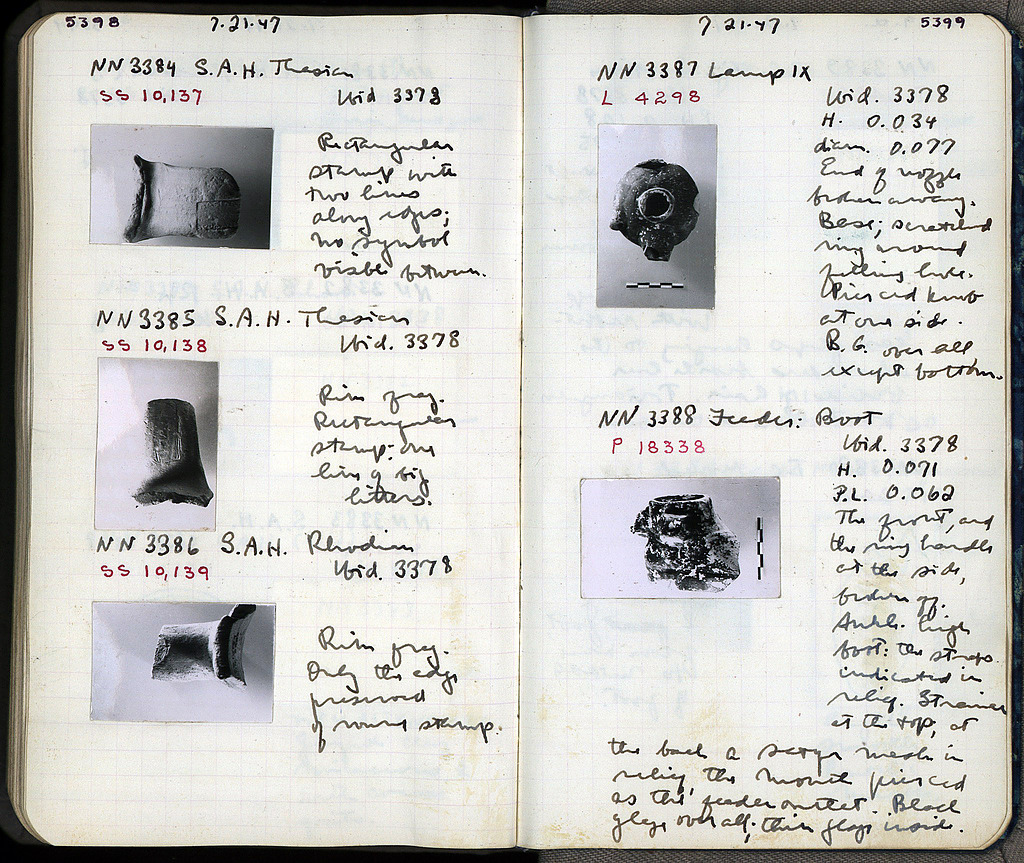 5398
7.21.47
NN 3384 S.A.H. Thasian
SS 10,137
Ibid 3378
Rectangular
stamp with
two lines
along edges;
no symbol
visible between.
NN 3385 S.A.H. Thasian
SS 10,138
Ibid. 3378
Rim frag.
Rectangular
stamp: one
line of big
letters.
NN 3386 S.A.H. Rhodian
SS 10,139
Ibid. 3378
Rim frag.
Only the edge
preserved
of round stamp.
7 21.47
5399
NN 3387 Lamp IX
L 4298
Ibid. 3378
H. 0.034
diam. 0.077
End of nozzle
broken away.
Base; scratched
ring around
filling hole.
Pierced knob
at one side.
B.G. over all
except bottom.
NN 3388 Feeder: Boot
P 18338
Ibid. 3378
H. 0.071
P.L. 0.062
The front, and
the ring handle
at the side,
broken off.
Ankle high
boot: the straps
indicated in
relief. Strainer
at the top, at
the back a satyr mask in
relief, the mouth pierced
as the feeder outlet. Black
glaze over all; thin glaze inside.